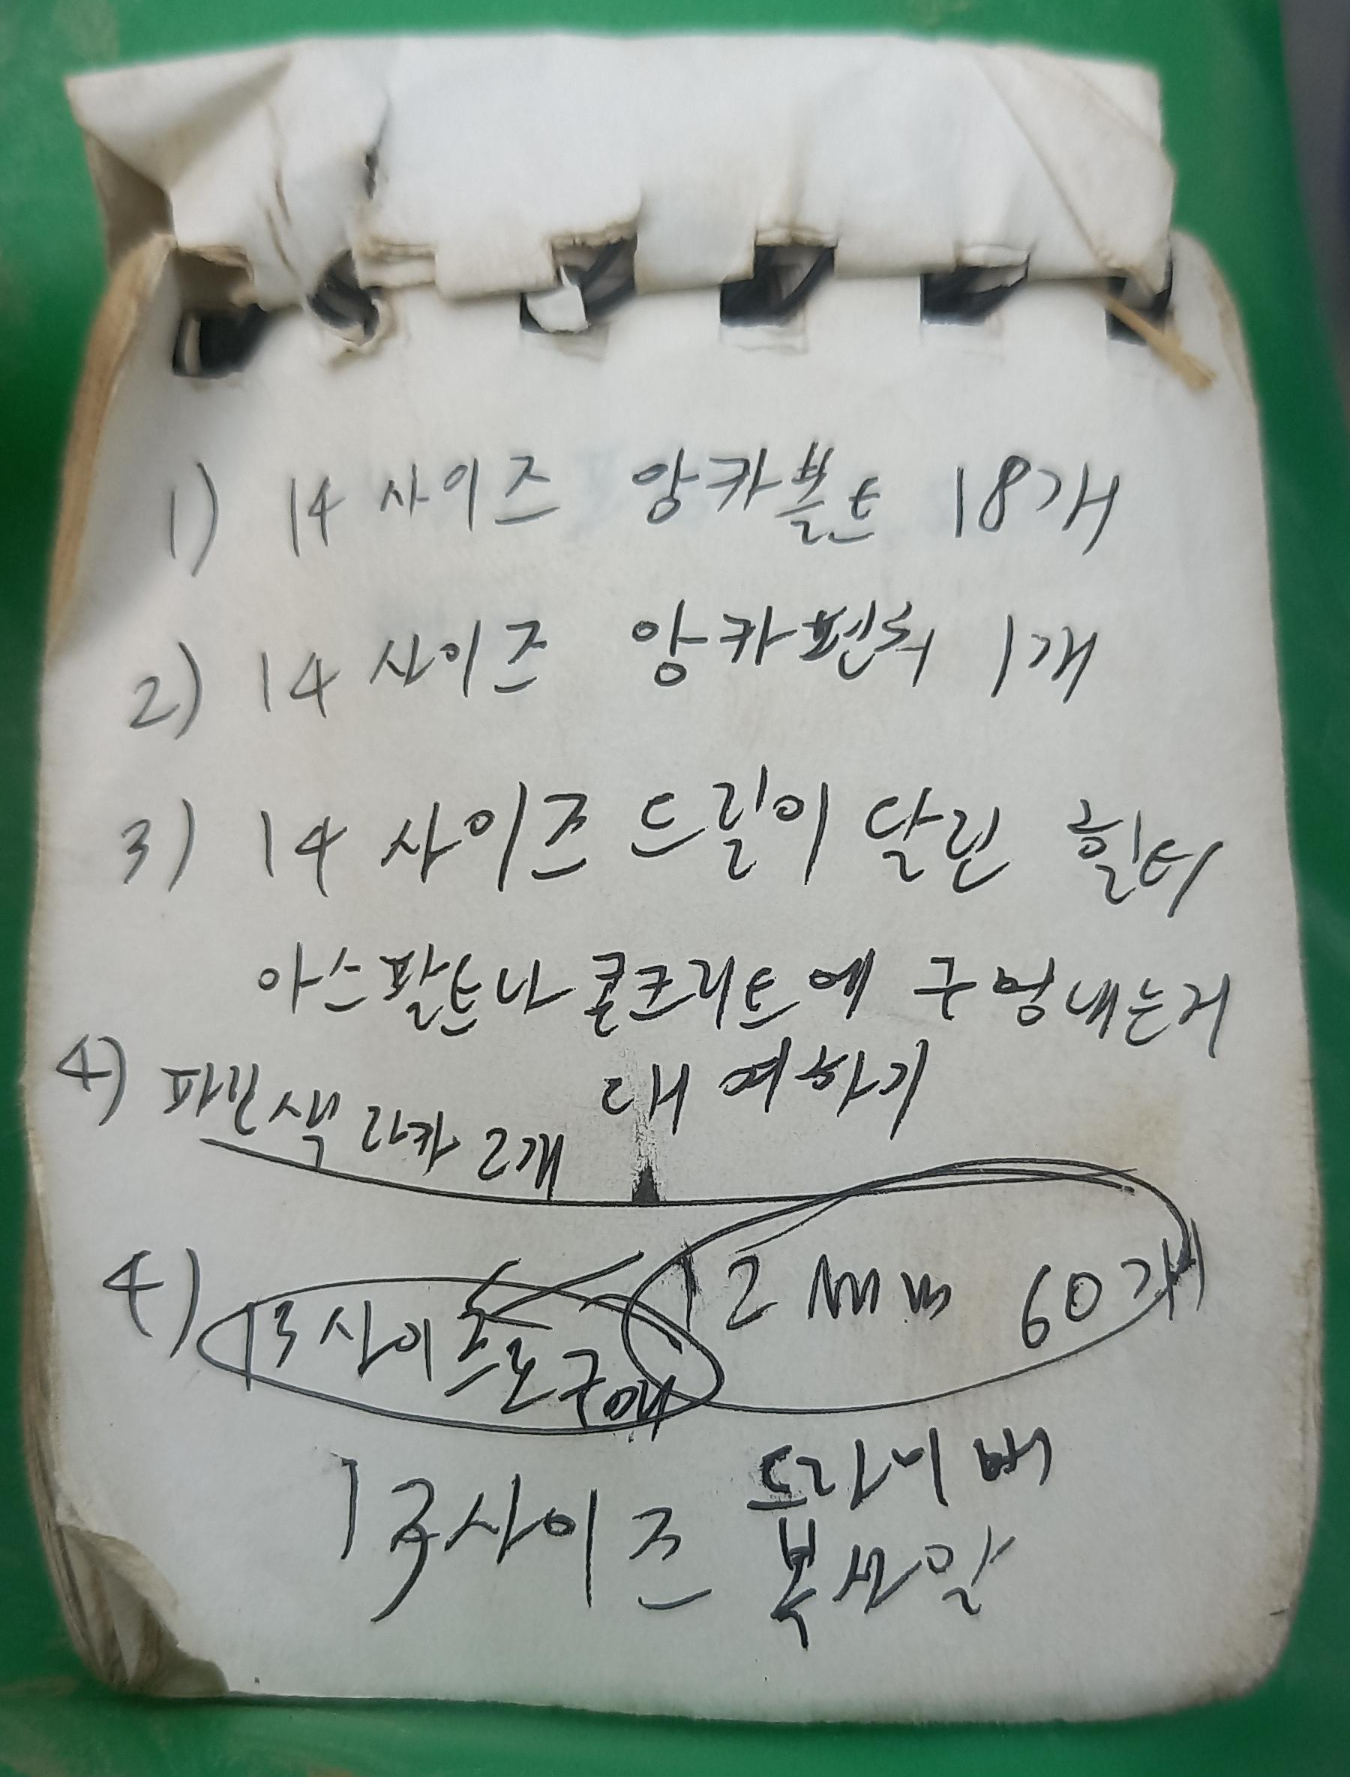 1) 14 사이즈 앙카볼트 18개
2) 14 사이즈 앙카펜치 1개
3) 14 사이즈 드릴이 달린 힐터
아스팔트나 콩크리트에 구멍내는거
대여하기
4) 파란색 라카 2개
4) 13사이즈로구매 12 60개
13사이즈 드라이버
복스알